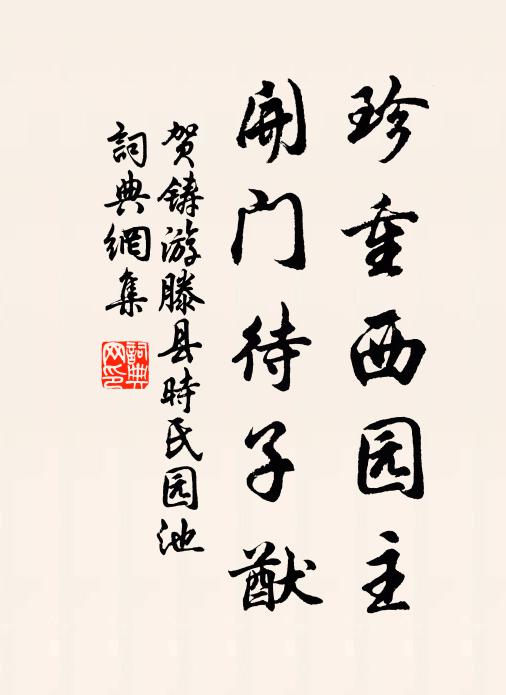 珍重西园主
開门待子猷
贺铸游滕县時氏园池
詞典網集
詞典網印